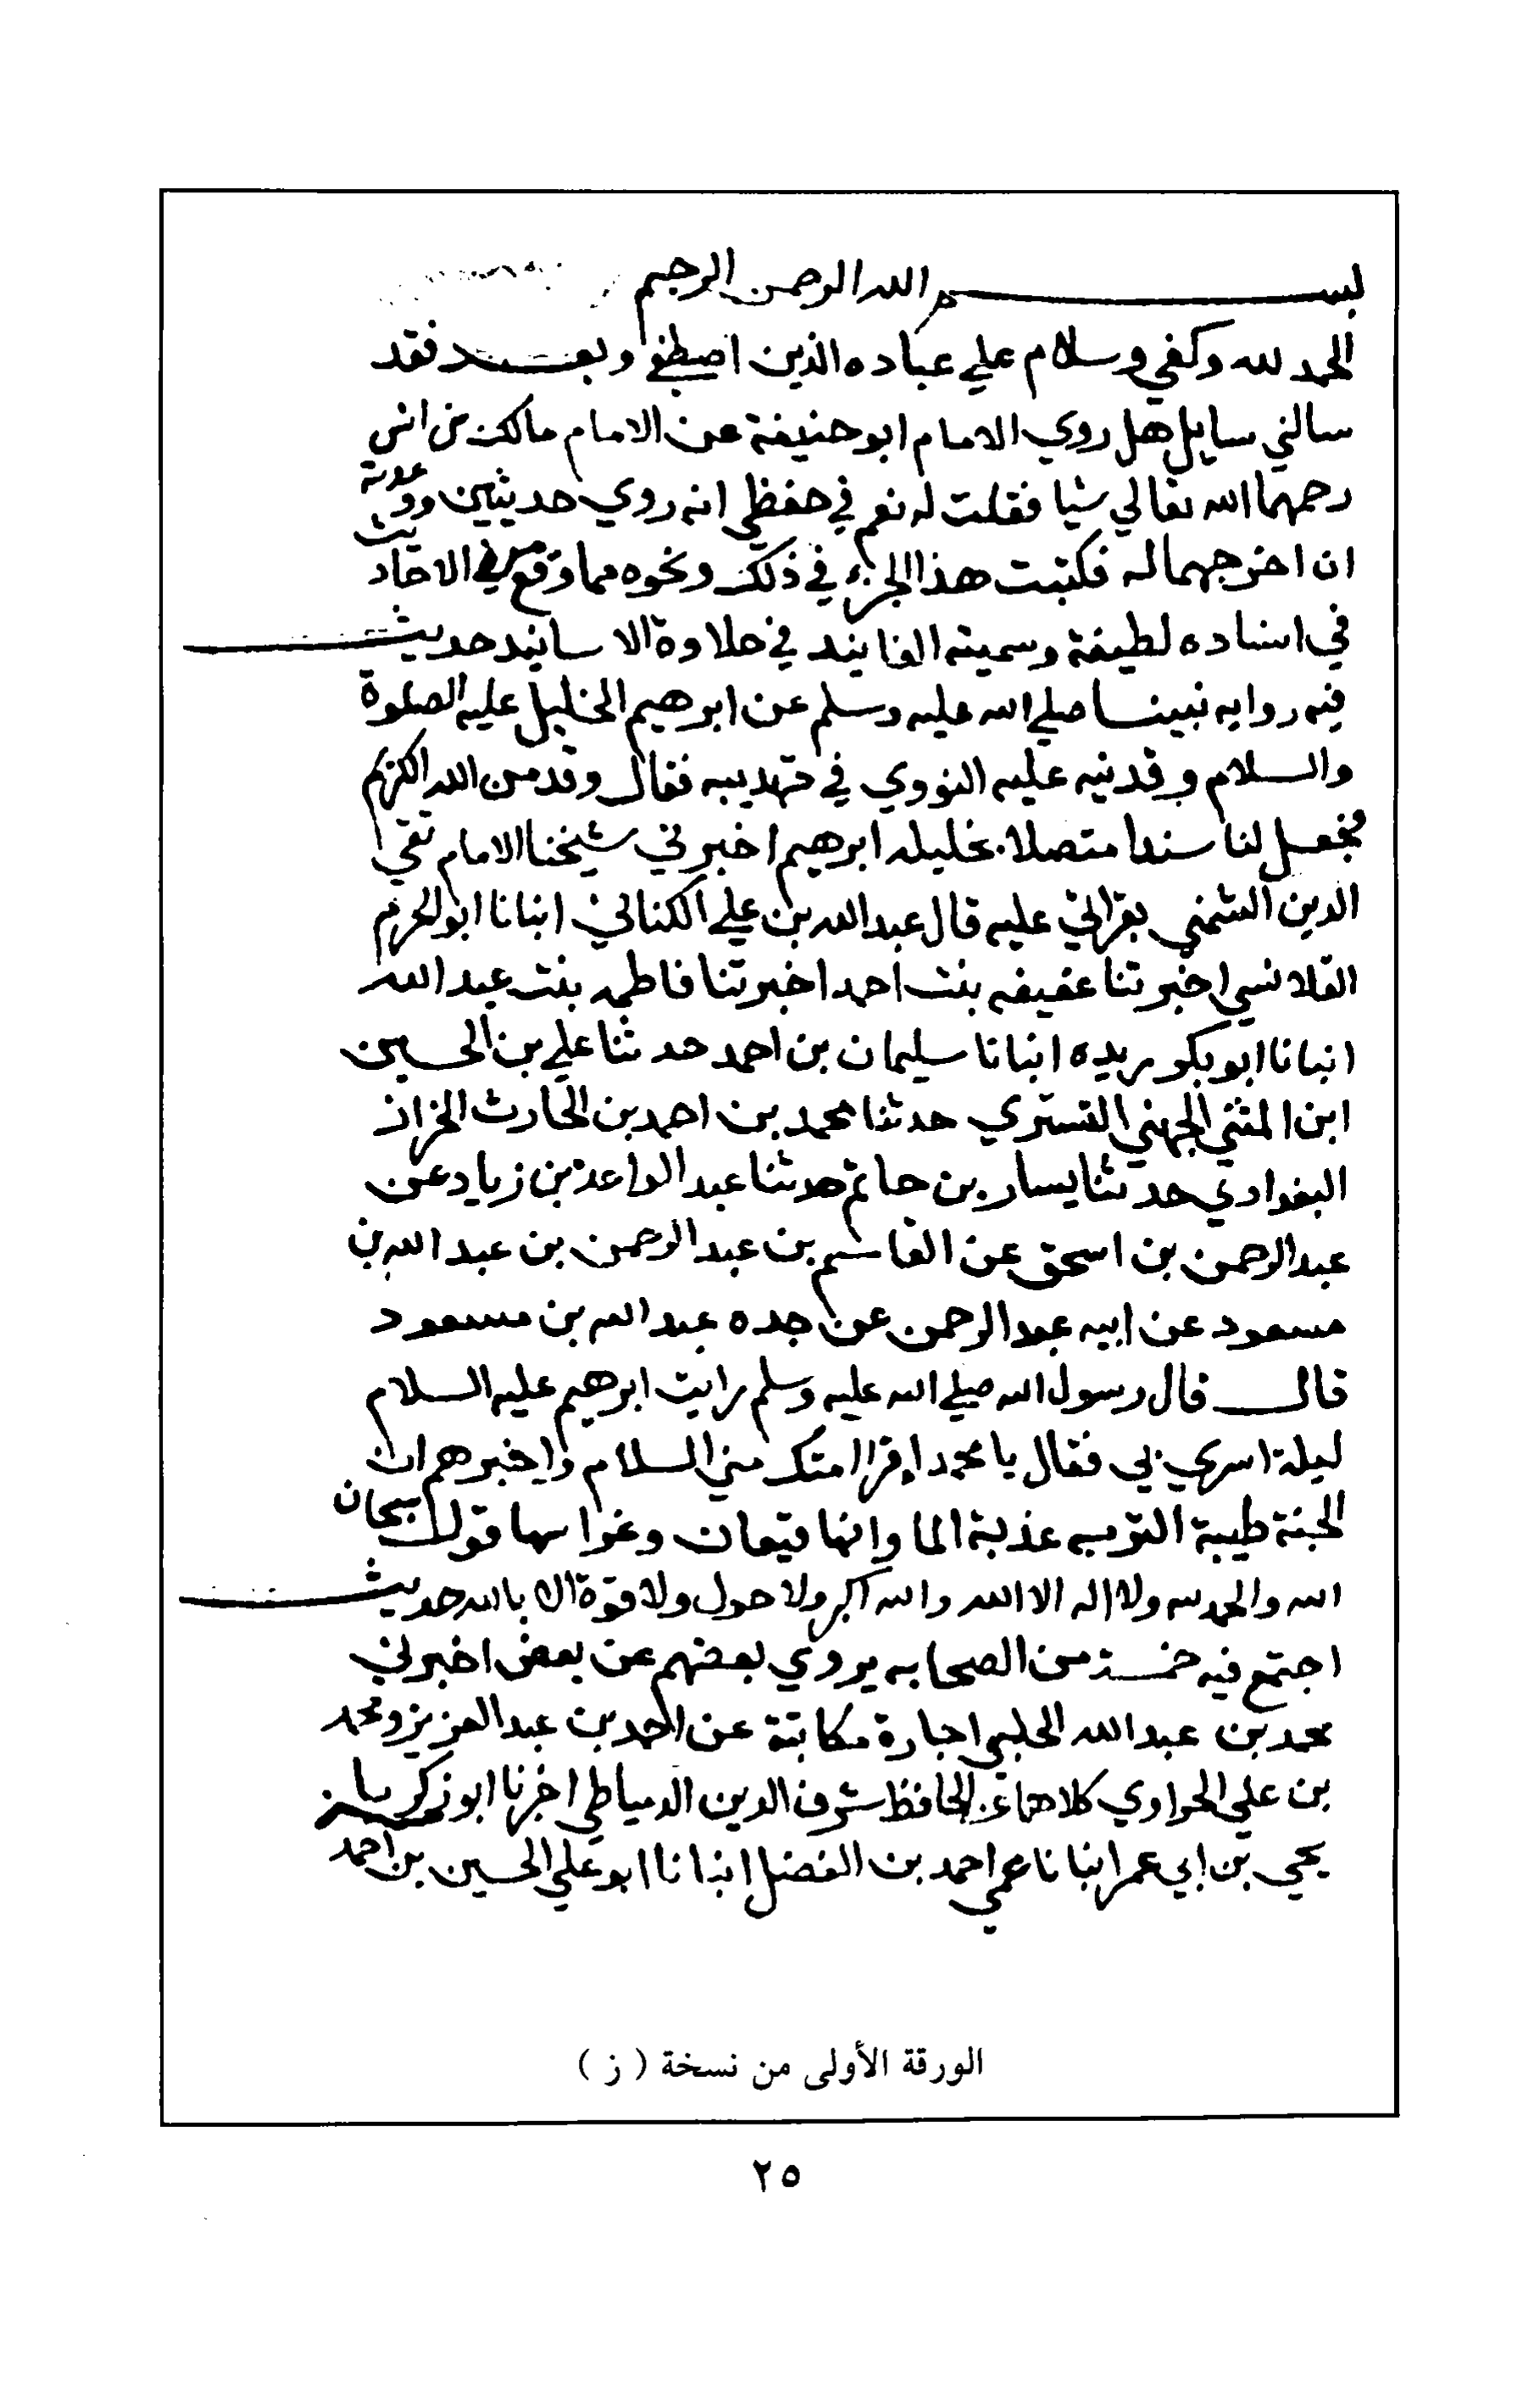 بســـــم الله الرحمن الرحيم
الحمد لله وكفي وسلام علي عباده الذين اصطفي وبعـــد فقد
سالني سايل هل روي الامام ابو حنيفة عن الامام مالك بن انس
رحمهما الله تعالي شيا فقلت له نعم في حفظي انه روي حديثين ووعدته
ان اخرجهما له فكتبت هذا الجزء في ذلك ونحوه مما وقع من الاحاديث
في اسناده لطيفة وسميته الفانيد في حلاوة الاسانيد حديث
فيه رواية نبينا صلي الله عليه وسلم عن ابرهيم الخليل عليه الصلوة
والسلام وقد نبه عليه النووي في تهذيبه فقال وقد من الله الكريم
فجعل لنا سندا متصلا بخليله ابرهيم اخبرني شيخنا الامام تقي
الدين الشمني بقراتي عليه قال عبد الله بن علي الكناني انبانا ابو الحرم
القلانسي اخبرتنا عفيفه بنت احمد اخبرتنا فاطمه بنت عبد الله
انبانا ابو بكر ريده انبانا سليمان بن احمد حدثنا علي بن الحسين
ابن المثني الجهني التستري حدثنا محمد بن احمد بن الحارث الخزاز
البغدادي حدثنا يسار بن حاتم حدثنا عبد الواحد بن زياد عن
عبد الرحمن بن اسحق عن القاسم بن عبد الرحمن بن عبد الله بن
مسعود عن ابيه عبد الرحمن عن جده عبد الله بن مسعود
قال قال رسول الله صلي الله عليه وسلم رايت ابرهيم عليه السلام
ليلة اسري بي فقال يا محمد اقرا امتك مني السلام واخبرهم ان
الجنة طيبة التربه عذبة الما وانها قيعان وغراسها قول سبحان
الله والحمد لله ولا اله الا الله والله اكبر ولا حول ولا قوة الا بالله حديث
اجتمع فيه خمسة من الصحابه يروي بعضهم عن بعض اخبرني
محمد بن عبد الله الحلبي اجازة مكاتبة عن احمد بن عبد العزيز ومحمد
بن علي الحراوي كلاهما عن الحافظ شرف الدين الدمياطي اخبرنا ابو زكريا
يحيي بن ابي عمر انبانا عمي احمد بن الفضل انبانا ابو علي الحسين بن احمد
الورقة الأولى من نسخة ( ز )
٢٥